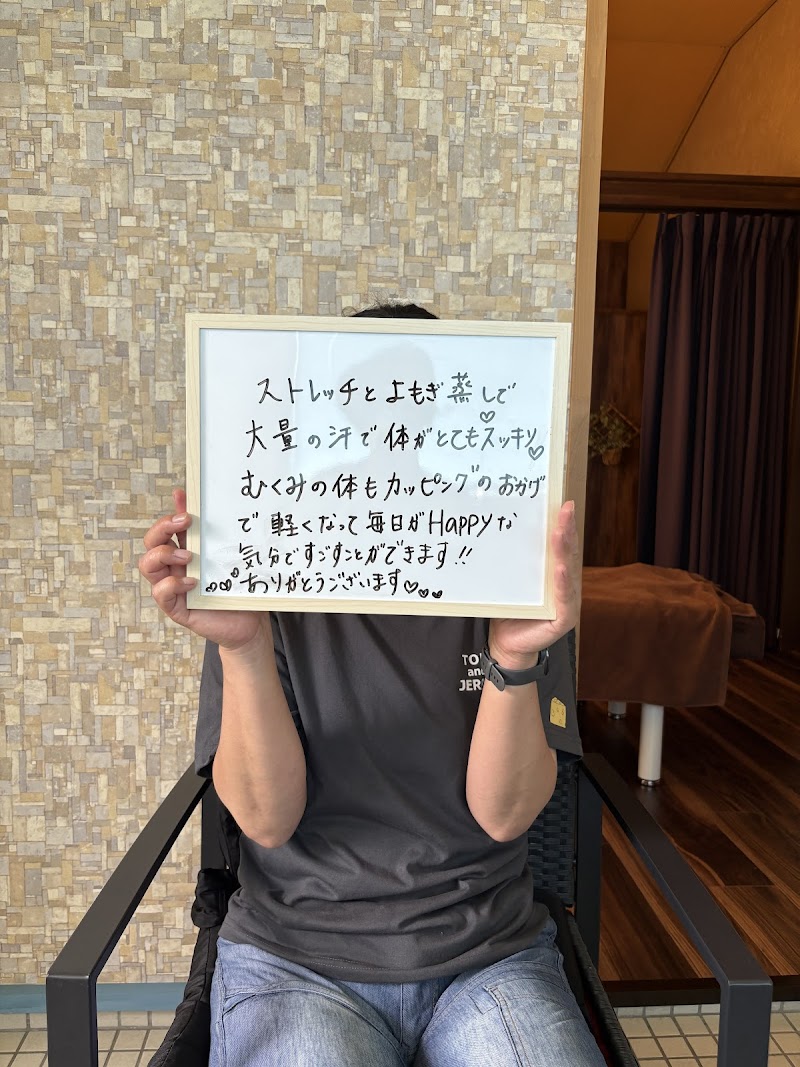 ストレッチとよもぎ蒸しで
大量の汗で体がとてもスッキリ♡♡
むくみの体もカッピングのおかげ
で軽くなって毎日がHappyな
気分ですごすことができます!!
ありがとうございます♡♡♡
and